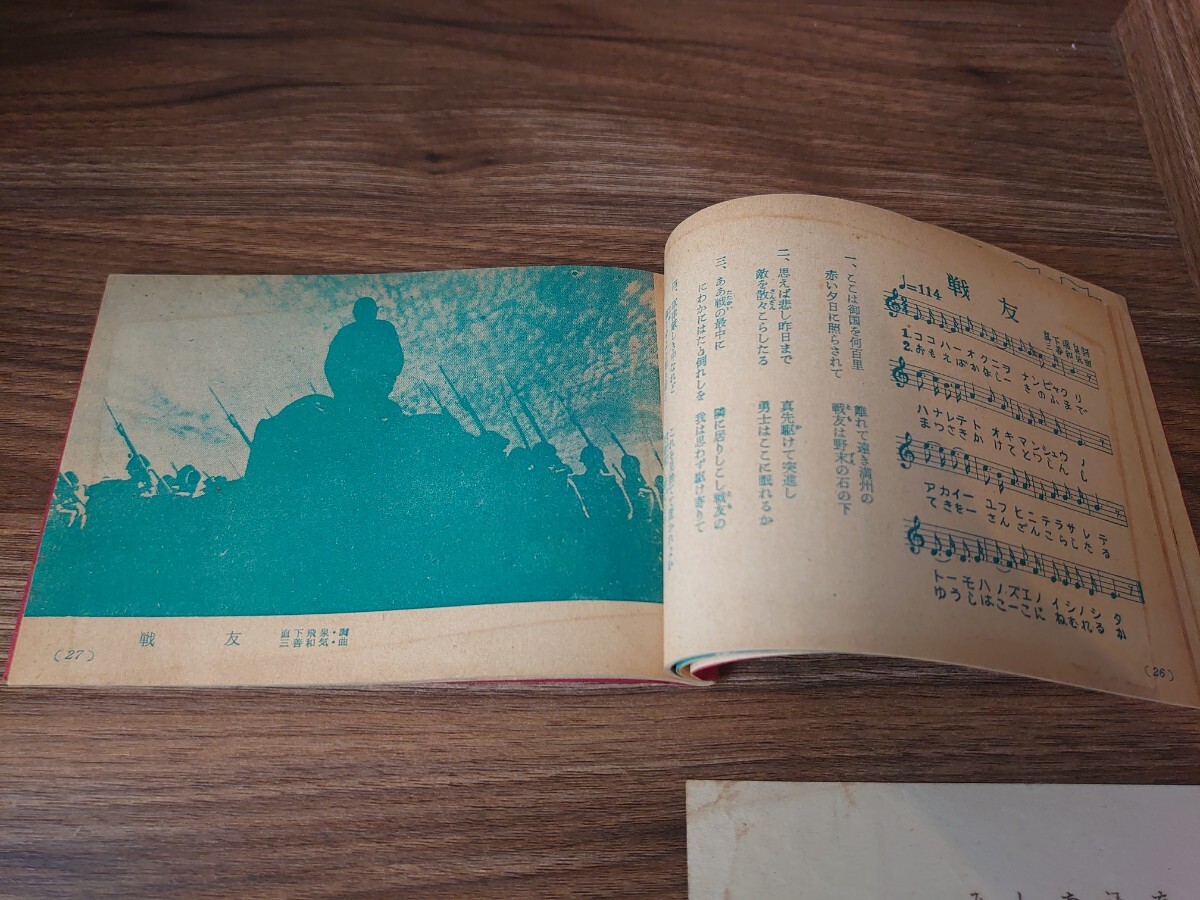 戦友
♩=114
真下飛泉・詞
三善和気・曲
1.ココハーオクニヲ ナンビャクリ
2.おもえばかなしー きのふまで
ハナレテト オキマンシュウノ
まっさきか けてとっしんし
アカイー ユフヒニテラサレテ
てきをー さんざんこらしたる
トーモハノズエノ イシノシタ
ゆうしはこーこに ねむれるか
一、ここは御国を何百里
離れて遠き満州の
赤い夕日に照らされて
戦友は野末の石の下
二、思えば悲し昨日まで
真先駆けて突進し
敵を散々こらしたる
勇士はここに眠れるか
三、ああ戦の最中に
隣に居りしこし戦友の
にわかにはたと倒れしを
我は思わず駆け寄りて
(26)
戦友
真下飛泉・詞
三善和気・曲
(27)